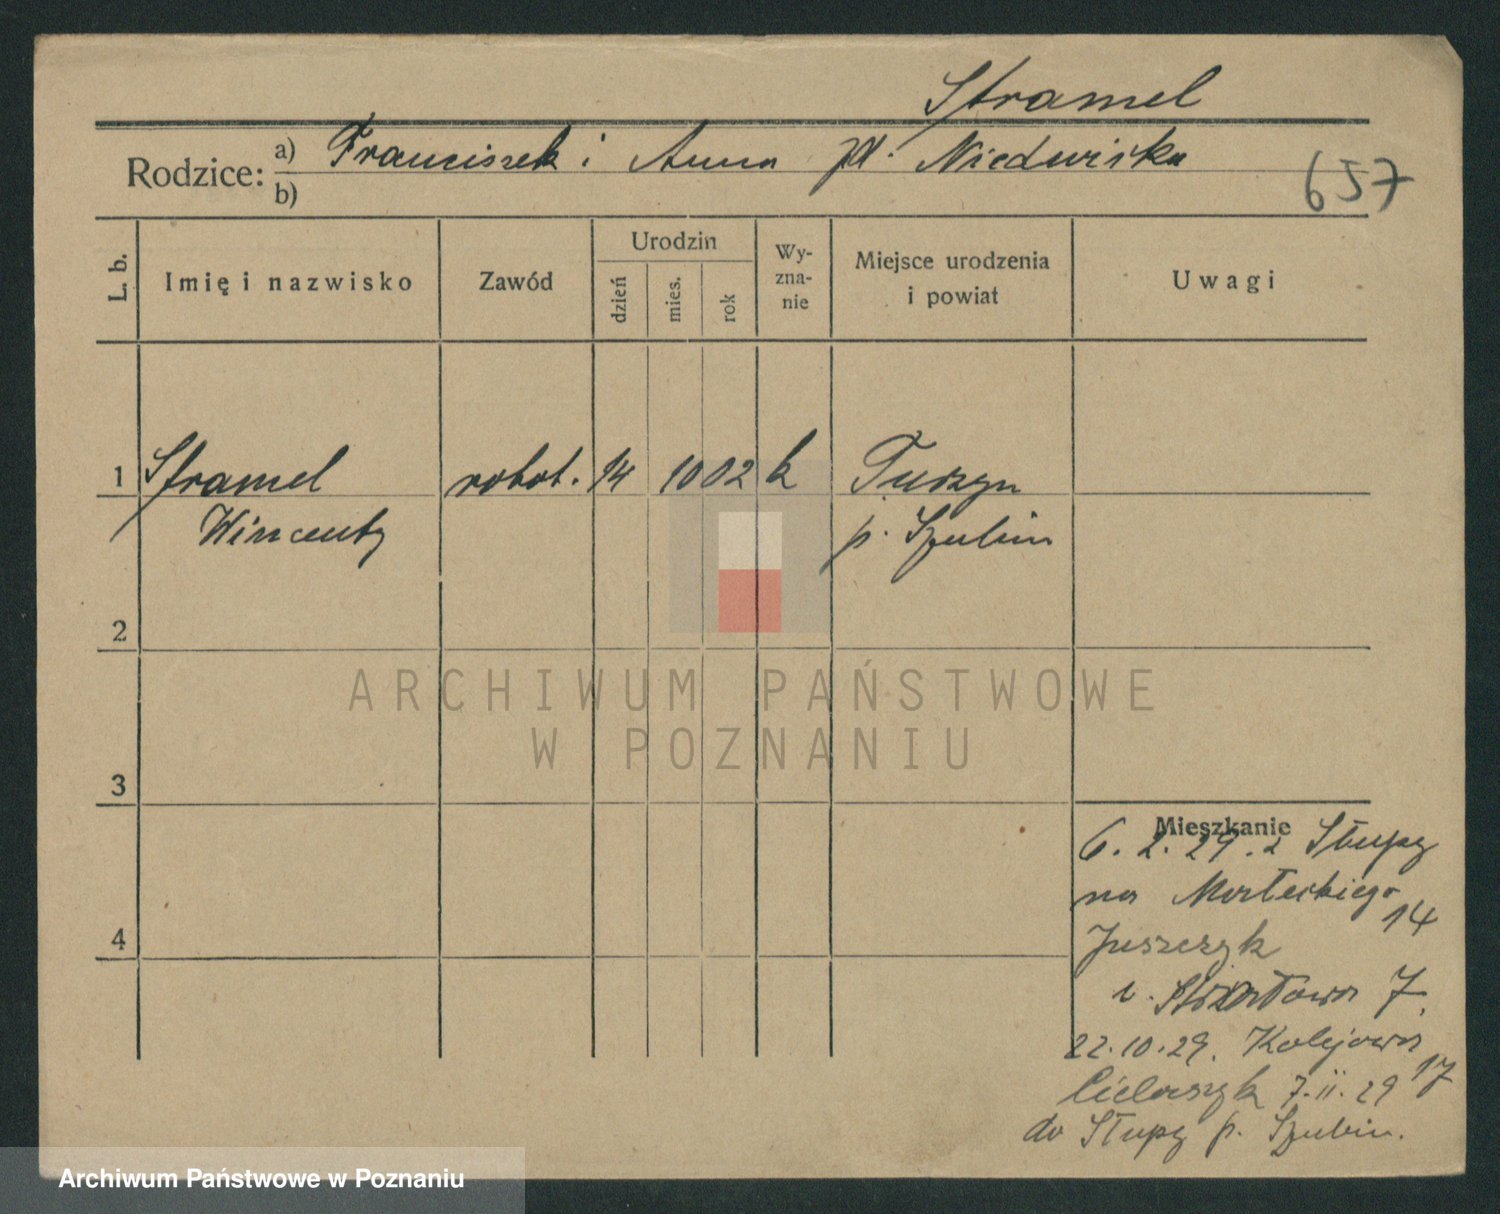 Stramel
Rodzice: a) Franciszek i Anna zd. Niedwiska
b)
657
L. b.
Imię i nazwisko
Zawód
Urodzin
dzień
mies.
rok
Wy-
zna-
nie
Miejsce urodzenia
i powiat
Uwagi
1 Stramel robot. 14 10 02 k Turzyn
Wincenty p. Szubin
2
ARCHIWUM PAŃSTWOWE
W POZNANIU
3
4
Mieszkanie
6. 2. 29. z Słupy
na Małeckiego 14
Juszczyk
7.
22.10.29. Kolejowa 17
7.II.29
do Słupy p. Szubin.
Archiwum Państwowe w Poznaniu